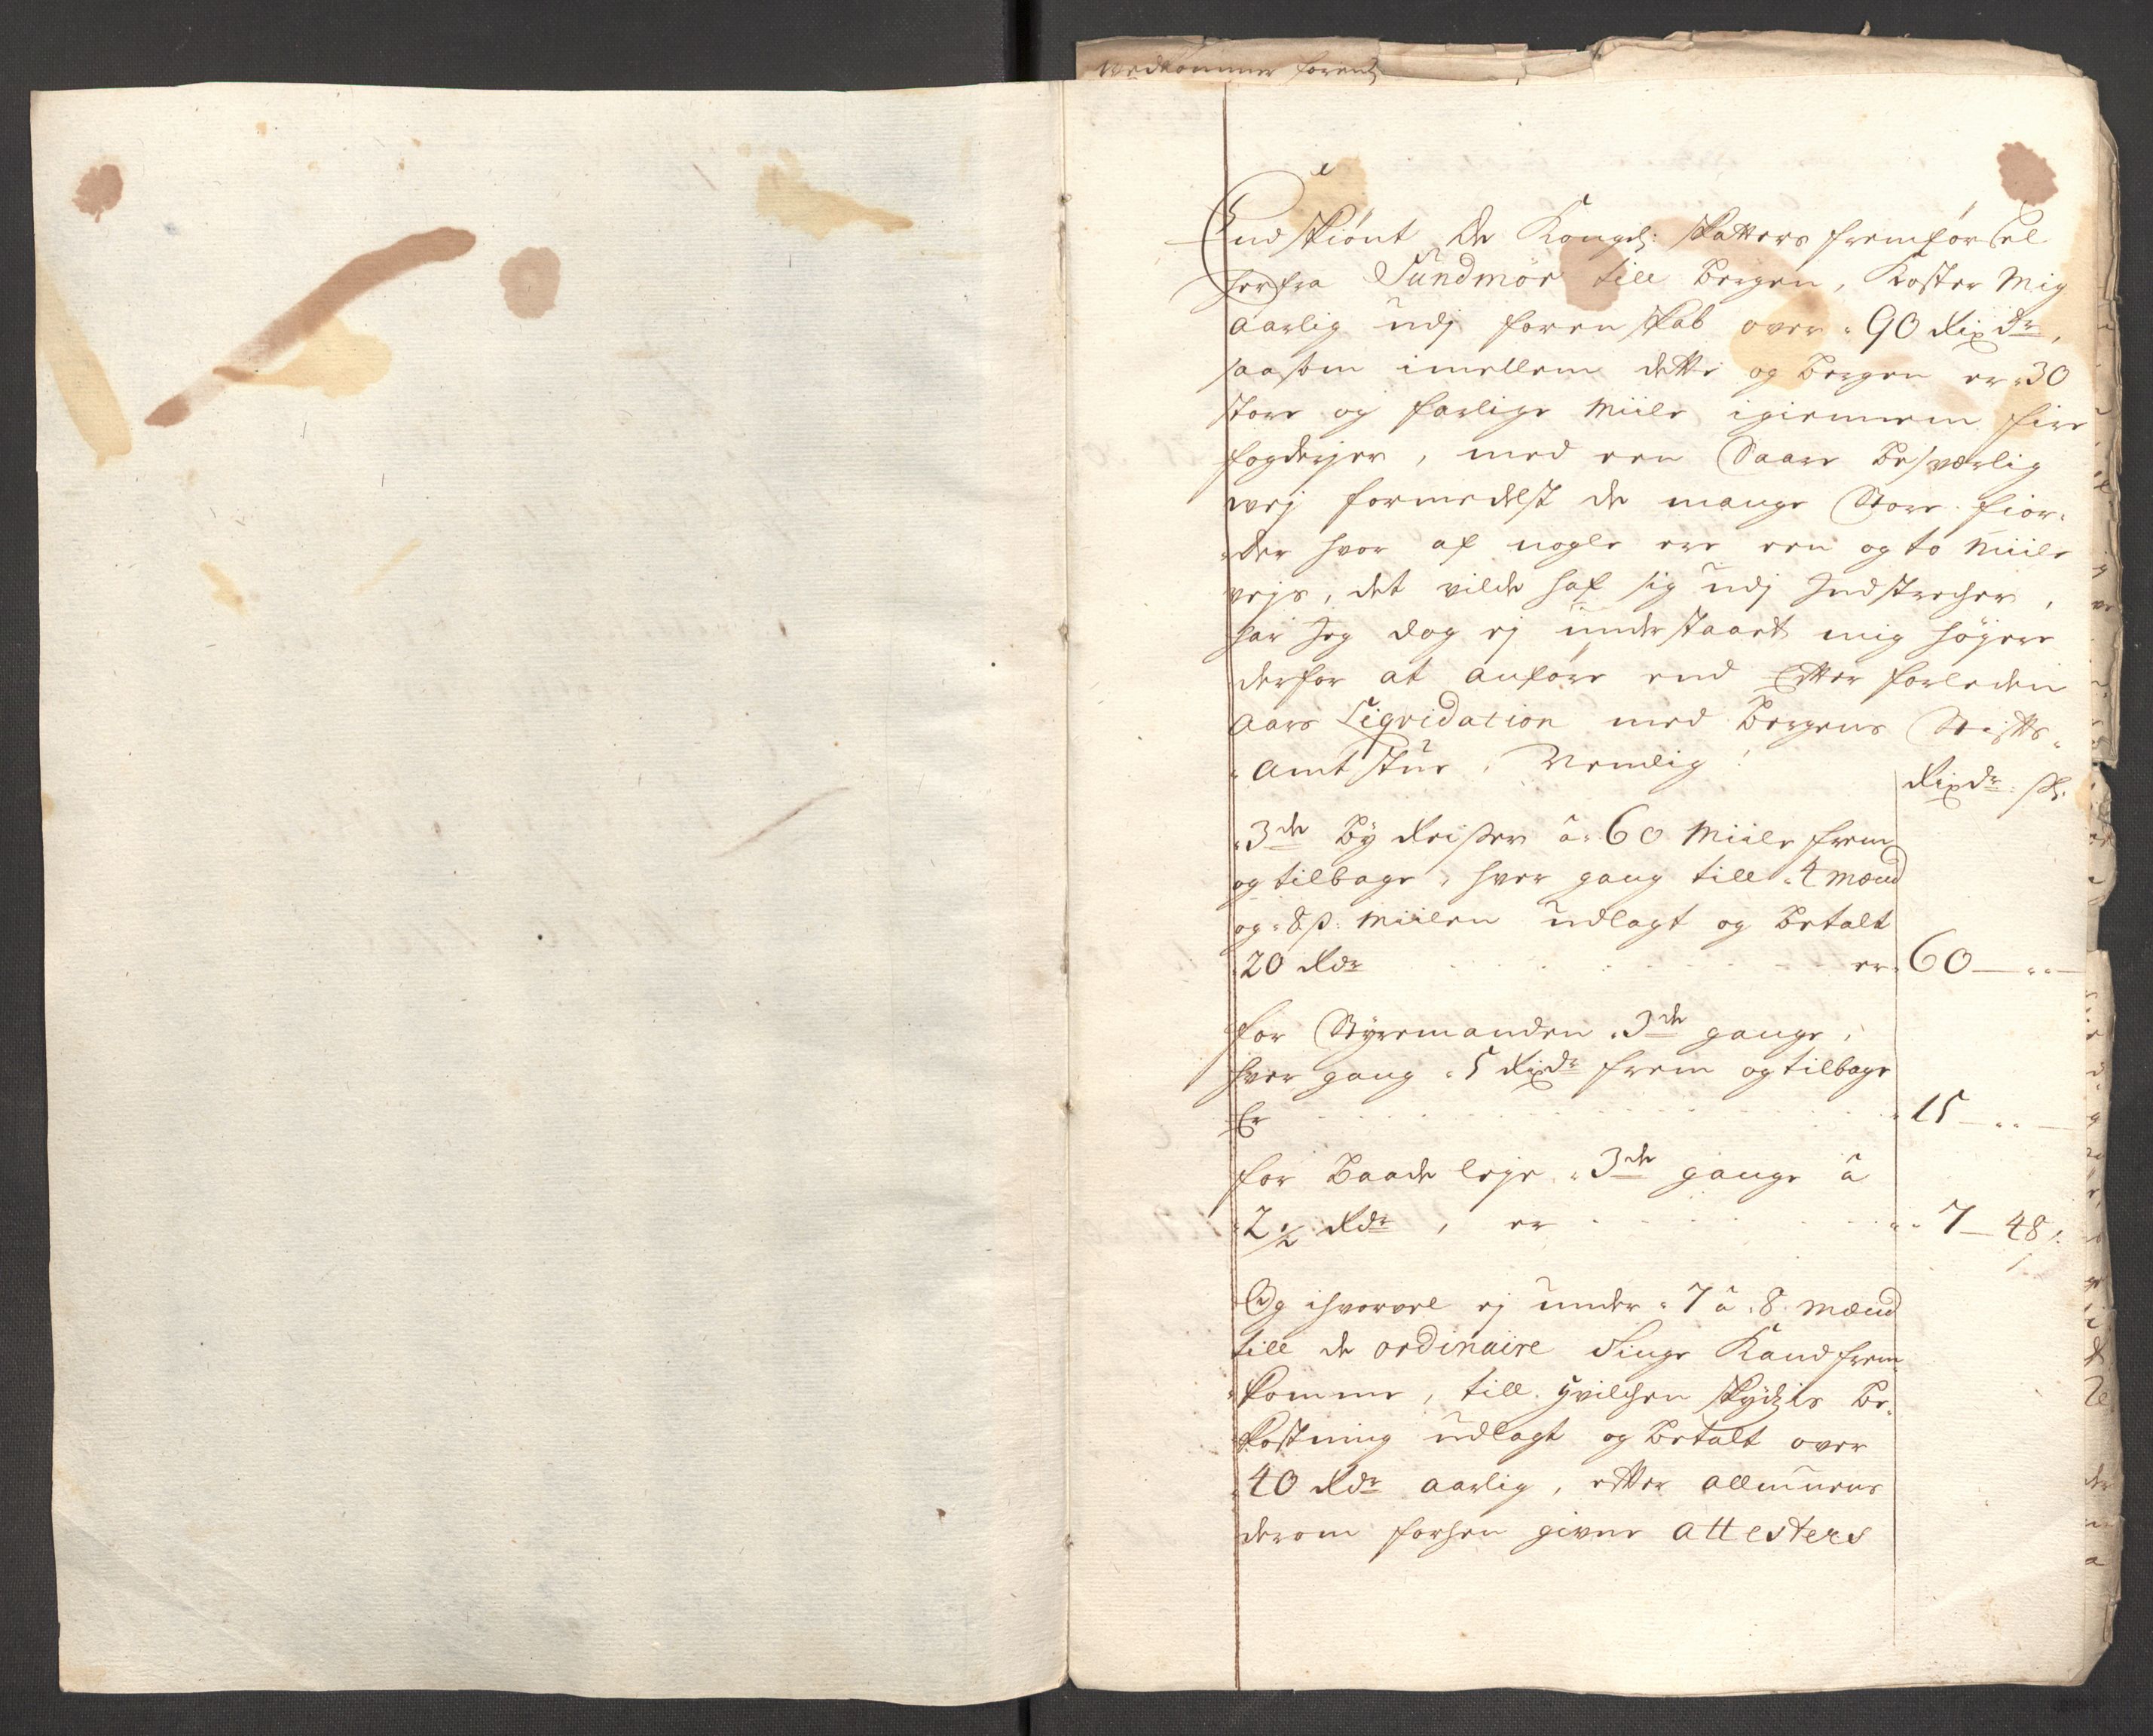 vedkommer foren
Endskiønt de Kongel: Skatters fremførsel
herfra Sundmør till Bergen, Koster Mig
aarlig udj foren skab over 90 Rixdr,
saasom imellem dette og Bergen er 30
store og farlige Miile igiennem fire
fogderjer, med een Saare besværlig
vej formedelst de mange Store fior-
der hvor af nogle ere een og to Miile
vejs, det vilde haf sig udj Indstrecher,
har Jeg dog ej understaaet mig højere
derfor at anføre end Efter forleden
Aars Liqvidation med Bergens Stifts-
Amtstue, Nemlig:
Rixdr: sk:
3de By Reiser â 60 Miile frem
og tilbage, hver gang till 4 mænd
og 8 s: Miilen udlagt og betalt
20 Rdr er 60 - ..
for Styremanden 3de gange,
hver gang 5 Rixdr frem og tilbage
Er 15 - ..
for Baade leje 3de gange â
2½ Rdr, er 7 - 48.
Og ihvorvel ej under 7 â 8 mænd
till de ordinaire Tinge Kand frem-
komme, till hvilchen skydzis be-
kostning udlagt og betalt over
40 Rdr aarlig, efter allmuens
derom forhen givne attesters